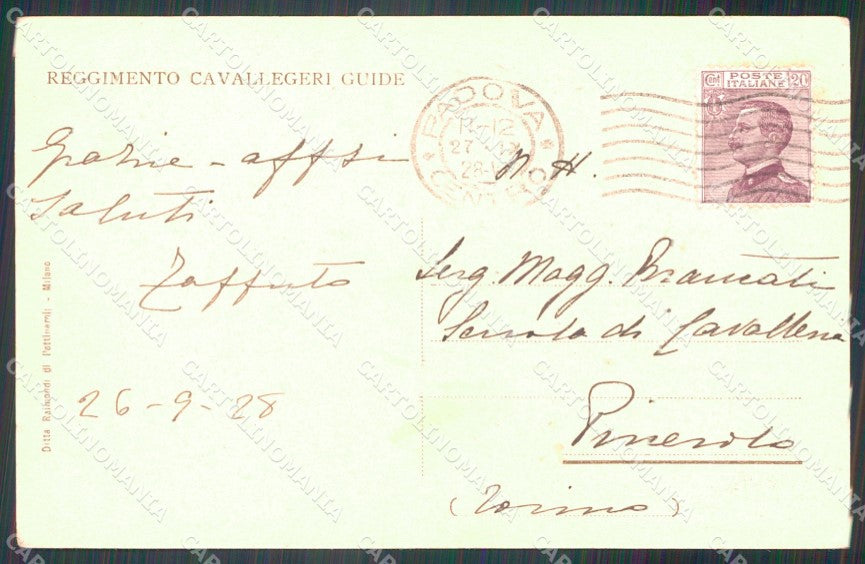 REGGIMENTO CAVALLEGERI GUIDE
Grazie - affssi
Saluti
Zaffuto
26-9-28
Ditta Raimondi di Pettinaroli - Milano
PADOVA
CENTRO
27
28
Cent POSTE ITALIANE 20
N. H.
Serg. Magg. Brancati
Scuola di Cavalleria
Pinerolo
(Torino)
CARTOLINOMANIA